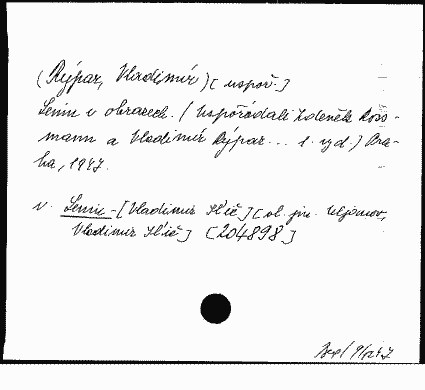 (Rýpar, Vladimír) [uspoř.]
Lenin v obrazech. (Uspořádali Zdeněk Ross-
mann a Vladimír Rýpar... 1. vyd.) Pra-
ha, 1947.
v. Lenin-[Vladimir Il'ič] [vl. jm. Uljanov,
Vladimir Il'ič] [204898]